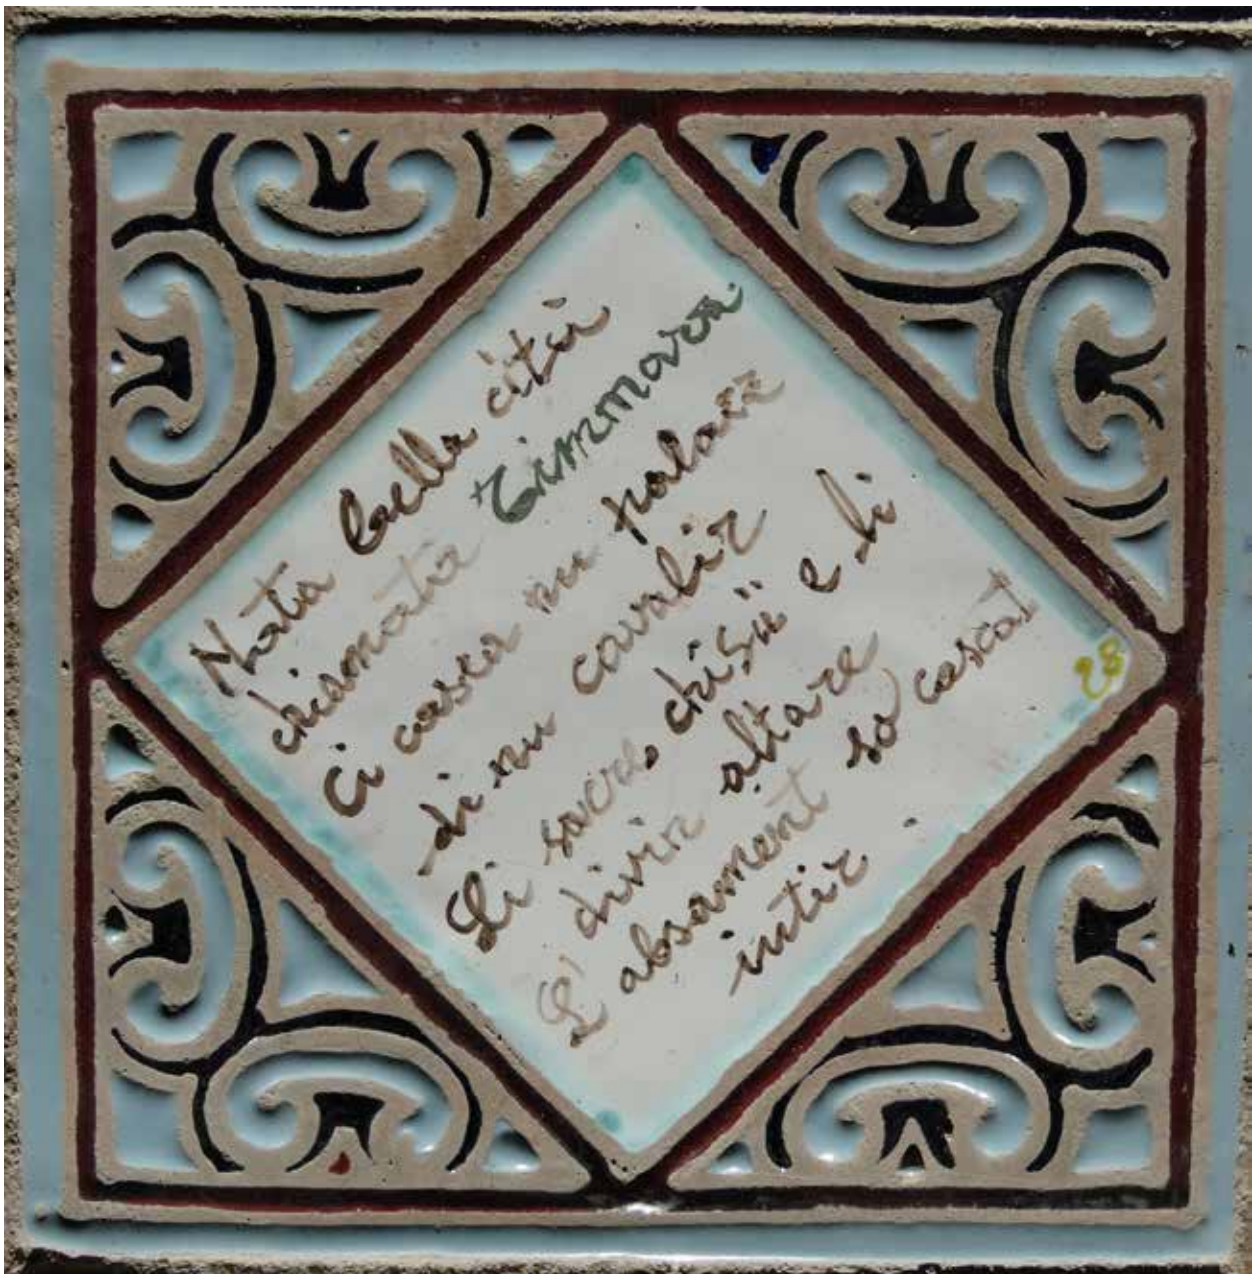 Nata bella cità
chiamata Terranova
Ci casca nu palazz
di nu cavalir
Li sacre chisii e li
divin altare
L'absament so cascat
intir
28